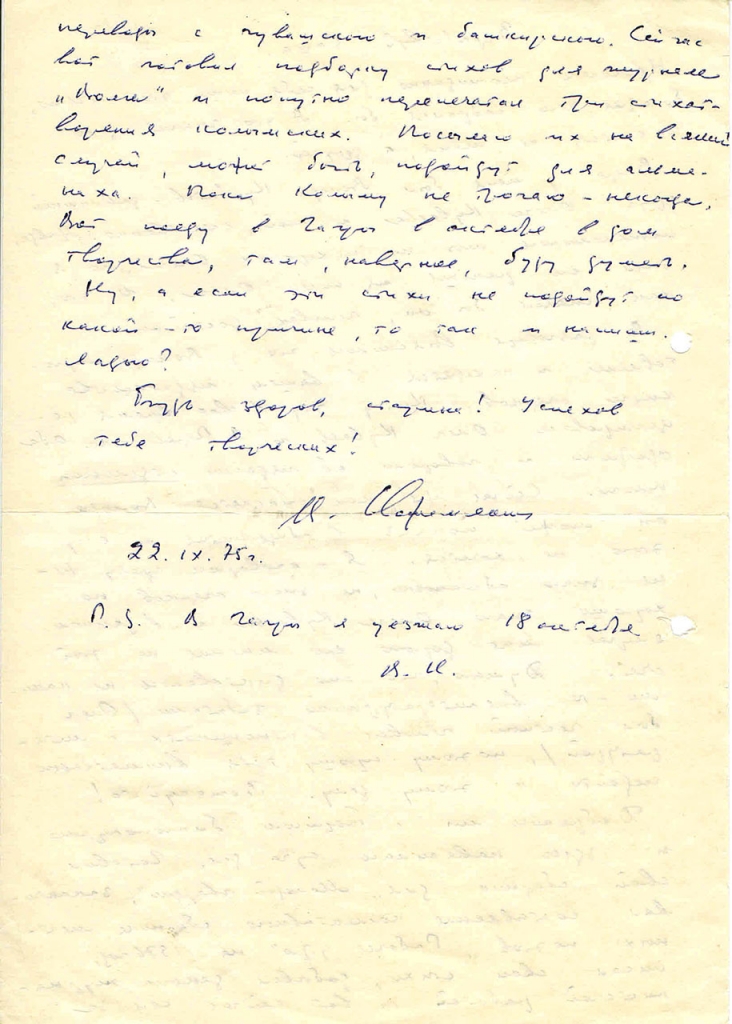 переводы с чувашского и башкирского. Сейчас
вот готовил подборку стихов для журнала
„Волга" и попутно перепечатал три стихот-
ворения колымских. Посылаю их на всякий
случай, может быть, подойдут для альма-
наха. Пока Колыму не трогаю – некогда,
Вот поеду в Гагры в октябре в дом
творчества, там, наверное, буду думать.
Ну, а если эти стихи не подойдут по
какой-то причине, то так и напиши.
Ладно?
Будь здоров, старина! Успехов
тебе творческих!
22.IX.75г.
P.S. В Гагры я уезжаю 18 октября